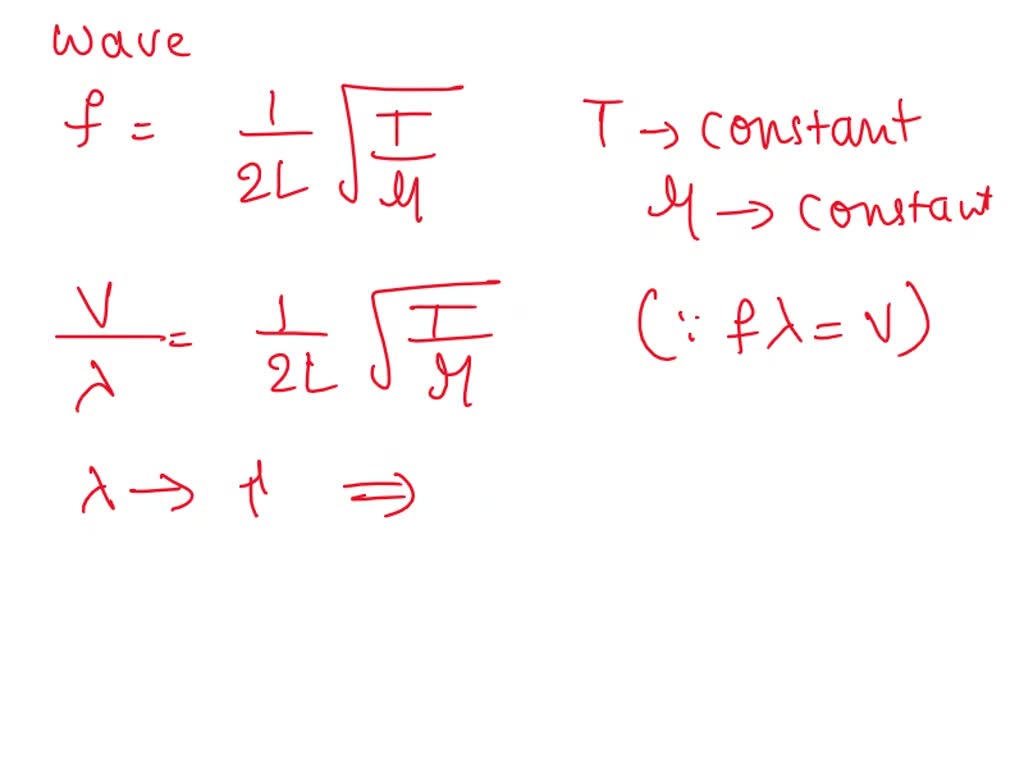 wave
f = 1/2L √(T/μ) T → constant
μ → constant
V/λ = 1/2L √(T/μ) (∵ fλ = V)
λ → ⇒